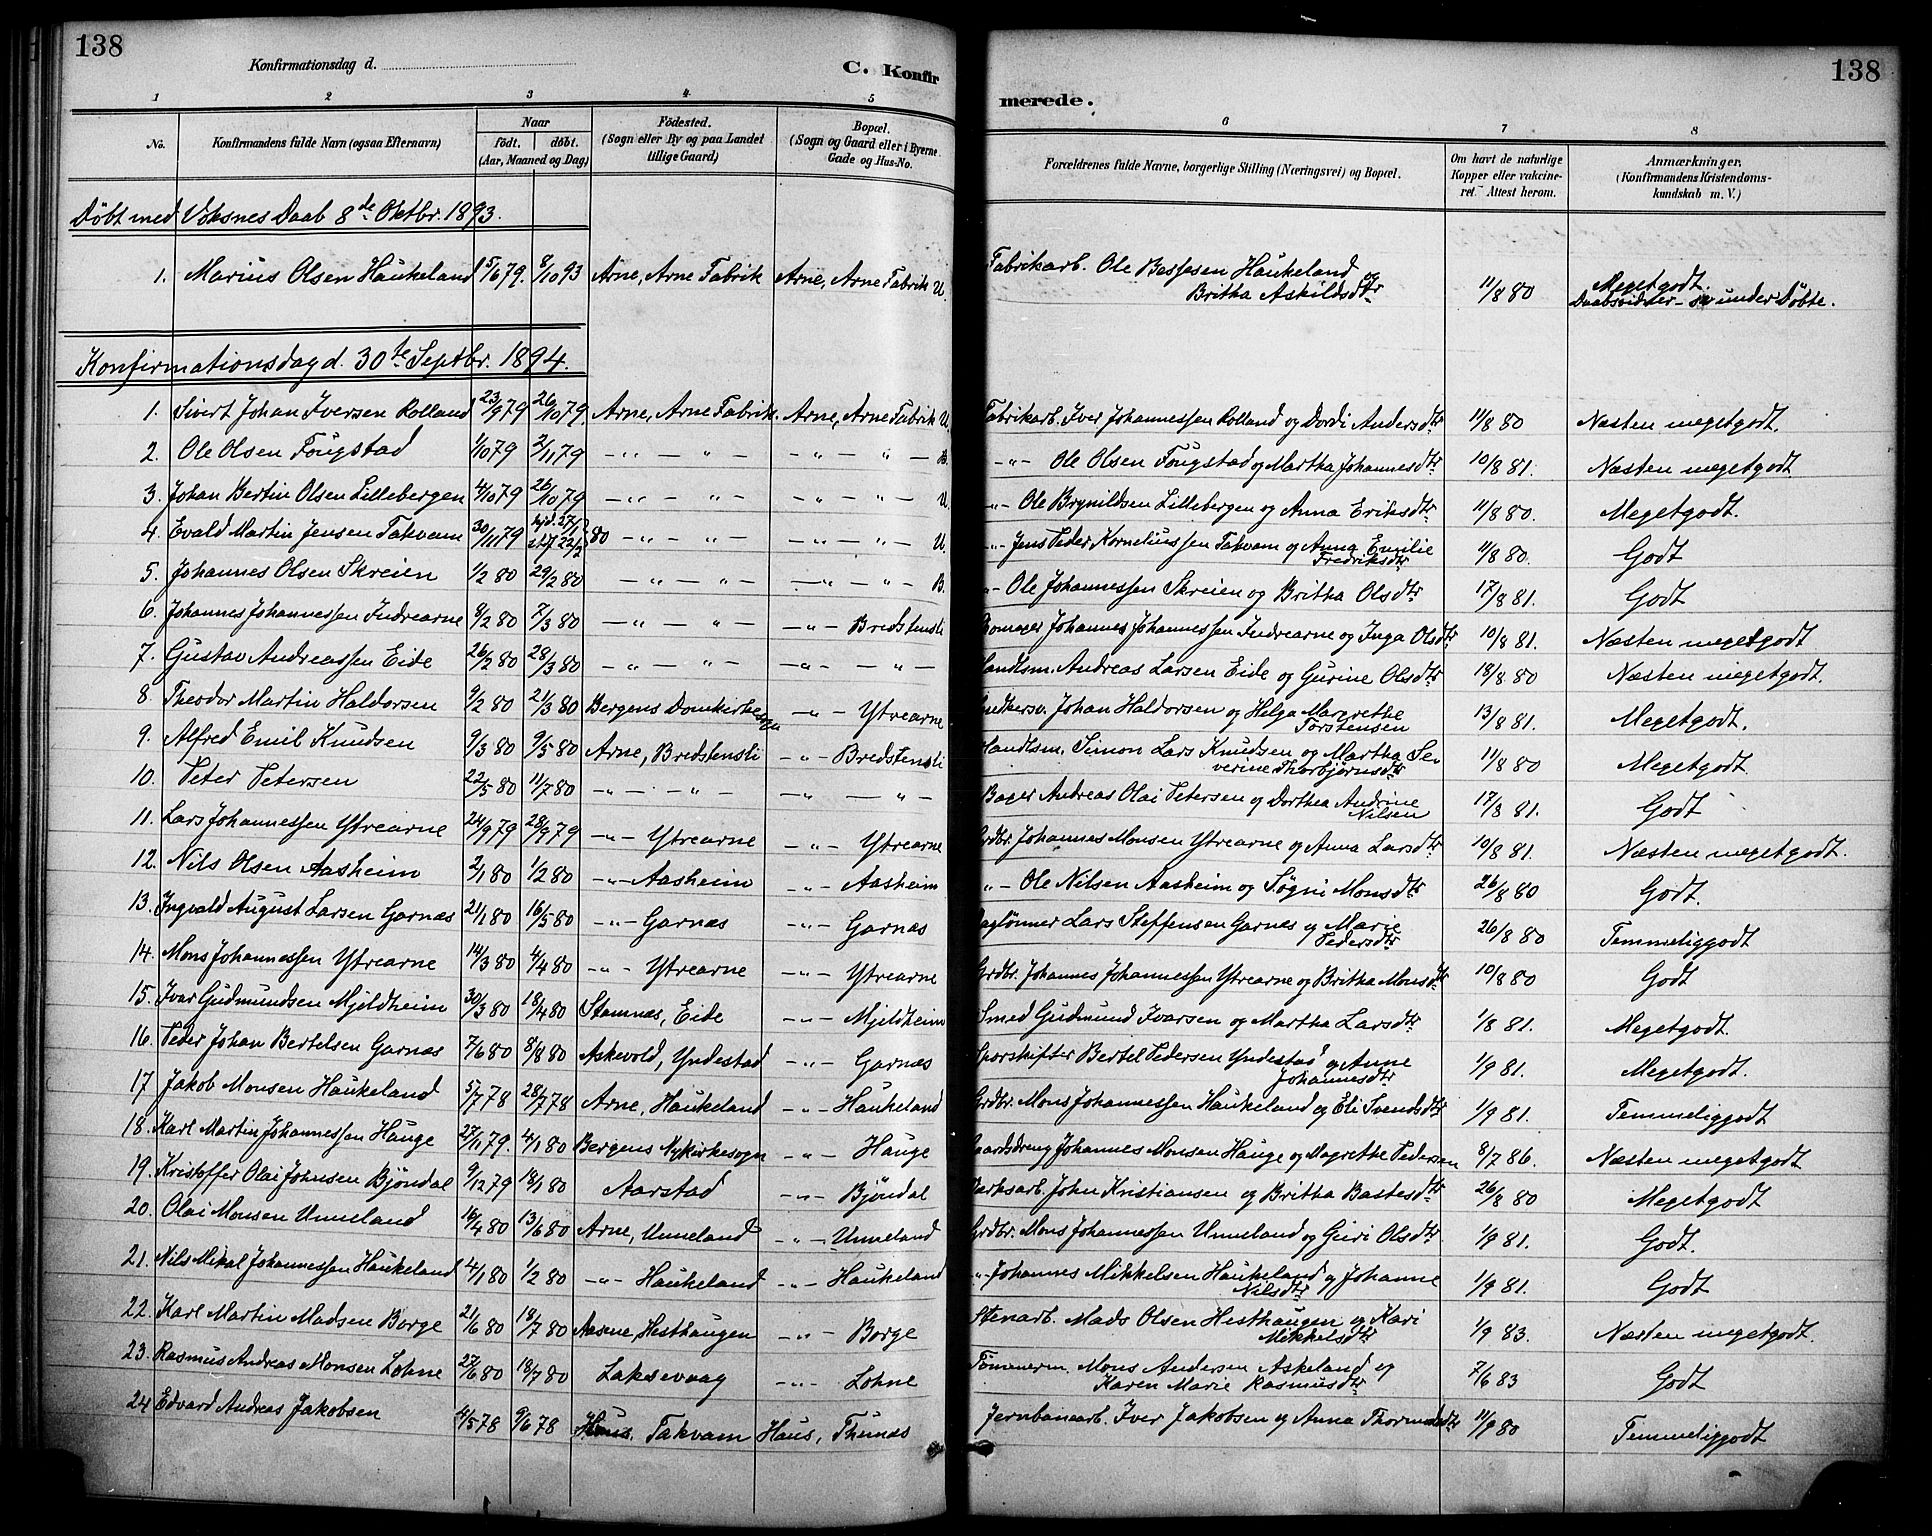 138
Konfirmationsdag d.
C. Konfir
merede.
138
1 2 3 4 5 6 7 8
No.
Konfirmandens fulde Navn (ogsaa Efternavn)
Naar
födt. döbt.
(Aar, Maaned og Dag)
Födested.
(Sogn eller By og paa Landet
tillige Gaard)
Bopæl.
(Sogn og Gaard eller i Byerne
Gade og Hus-No.
Forældrenes fulde Navne, borgerlige Stilling (Næringsvei) og Bopæl.
Om havt de naturlige
Kopper eller vakcine-
ret. Attest herom.
Anmærkninger,
(Konfirmandens Kristendoms-
kundskab m. V.)
Döbt med Voksnes Daab 8de Oktbr. 1893.
1. Marius Olsen Haukeland 15/6 79. 8/10 93 Arne, Arne Fabrik Arne, Arne Fabrik U. Fabrikarb. Ole Bassesen Haukeland og 11/8 80 Megetgodt.
Britha Askildsdtr Daabsvidner - se under Döbte.
Konfirmationsdag d. 30te Septbr. 1894.
1. Sivert Johan Iversen Rolland 23/9 79 26/10 79. Arne, Arne Fabrik. Arne, Arne Fabrik U. Fabrikarb. Iver Johannessen Rolland og Dordi Andersdtr 11/8 80 Næsten megetgodt.
2. Ole Olsen Fougstad 1/10 79 2/11 79 -"- -"- -"- " - B. -"- Ole Olsen Fougstad og Martha Johannesdtr 10/8 81. Næsten megetgodt
3. Johan Bertin Olsen Lillebergen 4/10 79 26/10 79 -"- "- -"- "- U. "- Ole Brynildsen Lillebergen og Anna Eriksdtr 11/8 80. Megetgodt.
4. Evald Martin Jensen Takvam 30/11 79 hjd. 27/12 stdf 22/2 80 -"- -"- -"- "- U. "- Jens Peder Korneliussen Takvam og Anna Emilie 11/8 80. Godt
Fredriksdtr
5. Johannes Olsen Skreien 1/2 80 29/2 80 -"- "- -"- "- B. "- Ole Johannessen Skreien og Britha Olsdtr 17/8 81. Godt
6. Johannes Johannessen Indrearne 8/2 80 7/3 80 -"- " - -"- Bredstensli Johannes Johannessen Indrearne og Inga Olsdtr 10/8 81. Næsten megetgodt
7. Gustav Andreassen Eide 26/2 80 28/3 80 -"- "- -"- "- Handlsm. Andreas Larsen Eide og Gurine Olsdtr 18/8 80 Næsten megetgodt.
8. Theodor Martin Haldorsen 9/2 80 21/3 80 Bergens Domkirkesogn -"- Ytrearne Johan Haldorsen og Helga Margrethe 13/8 81. Megetgodt.
Torstensen
9. Alfred Emil Knudsen 9/3 80 9/5 80 Arne, Bredstensli -"- Bredstensli Handlsm. Simon Lars Knudsen og Martha Se- 11/8 80 Megetgodt.
verine Thorbjörnsdtr
10. Peter Petersen 22/5 80 11/7 80 -"- "- -"- "- Bager Andreas Olai Petersen og Dorthea Andrine 17/8 81. Godt
Nilsen
11. Lars Johannessen Ytrearne 24/9 79 28/9 79 -"- Ytrearne -"- Ytrearne Grdbr. Johannes Monsen Ytrearne og Anna Larsdtr 10/8 81. Næsten megetgodt.
12. Nils Olsen Aasheim 2/1 80 1/2 80 -"- Aasheim -"- Aasheim "- Ole Nilsen Aasheim og Sögni Monsdtr 26/8 80 Godt.
13. Ingvald August Larsen Garnæs 21/1 80 16/5 80 -"- Garnæs -"- Garnæs Daglönner Lars Steffensen Garnæs og Marie 26/8 80 Temmeliggodt
Pedersdtr
14. Mons Johannessen Ytrearne 14/3 80 4/4 80 -"- Ytrearne -"- Ytrearne Grdbr. Johannes Johannessen Ytrearne og Britha Monsdtr 10/8 80 Godt
15. Ivar Gudmundsen Mjeldheim 30/3 80 18/4 80 Stamnæs, Eide -"- Mjeldheim Smed Gudmund Ivarsen og Martha Larsdtr 1/8 81. Megetgodt.
16. Peder Johan Bertelsen Garnæs 7/6 80 8/8 80 Askevold, Yndestad -"- Garnæs Sporskifter Bertel Pedersen Yndestad og Anne 1/9 81. Megetgodt.
Johannesdtr
17 Jakob Monsen Haukeland 5/7 78 28/7 78 Arne, Haukeland -"- Haukeland Grdbr. Mons Johannessen Haukeland og Eli Svendsdtr 1/9 81. Temmeliggodt
18. Karl Martin Johannessen Hauge 27/11 79. 4/1 80 Bergens Nykirkesogn -"- Hauge Gaardsdreng Johannes Monsen Hauge og Dagrethe Pedersen 8/7 86. Næsten megetgodt
19. Kristoffer Olai Johnsen Bjöndal 9/12 79 18/1 80 Aarstad -"- Bjöndal John Kristiansen og Britha Bastesdtr 26/8 80 Megetgodt
20. Olai Monsen Unneland 16/4 80 13/6 80 Arne, Unneland -"- Unneland Grdbr. Mons Johannessen Unneland og Guri Olsdtr 1/9 81. Godt.
21. Nils Mikal Johannessen Haukeland 4/1 80 1/2 80 -"- Haukeland -"- Haukeland "- Johannes Mikkelsen Haukeland og Johanne 1/9 81. Godt
Nilsdtr
22. Karl Martin Madsen Borge 21/6 80 18/7 80 Aasne, Hesthaugen -"- Borge Stenarb. Mads Olsen Hesthaugen og Kari 1/9 83. Næsten megetgodt.
Mikkelsdtr
23. Rasmus Andreas Monsen Lohne 27/6 80 18/7 80 Laksevaag -"- Lohne Tömmerm. Mons Andersen Askeland og 7/6 83 Godt
Karen Marie Rasmusdtr
24 Edvard Andreas Jakobsen 4/5 78 9/6 78 Haus, Takvam Haus, Thunæs Jernbanearb. Iver Jakobsen og Anna 11/9 80 Temmeliggodt